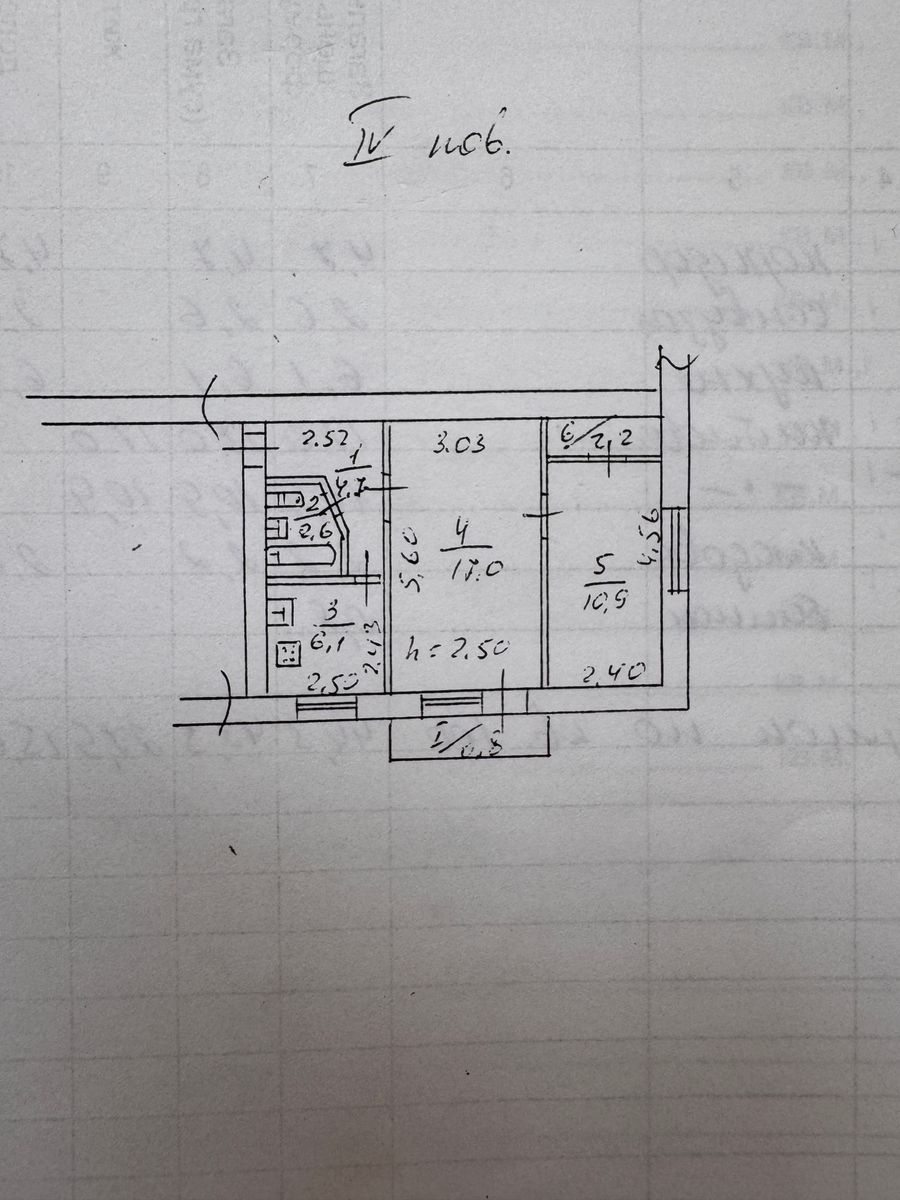 IV пов.
2.52
1
4,7
3.03
6/2,2
2
2,6
5.60
4
17.0
4,56
5
10,9
3
6,1
2,43
h = 2.50
2,50
2,40
I/0,8